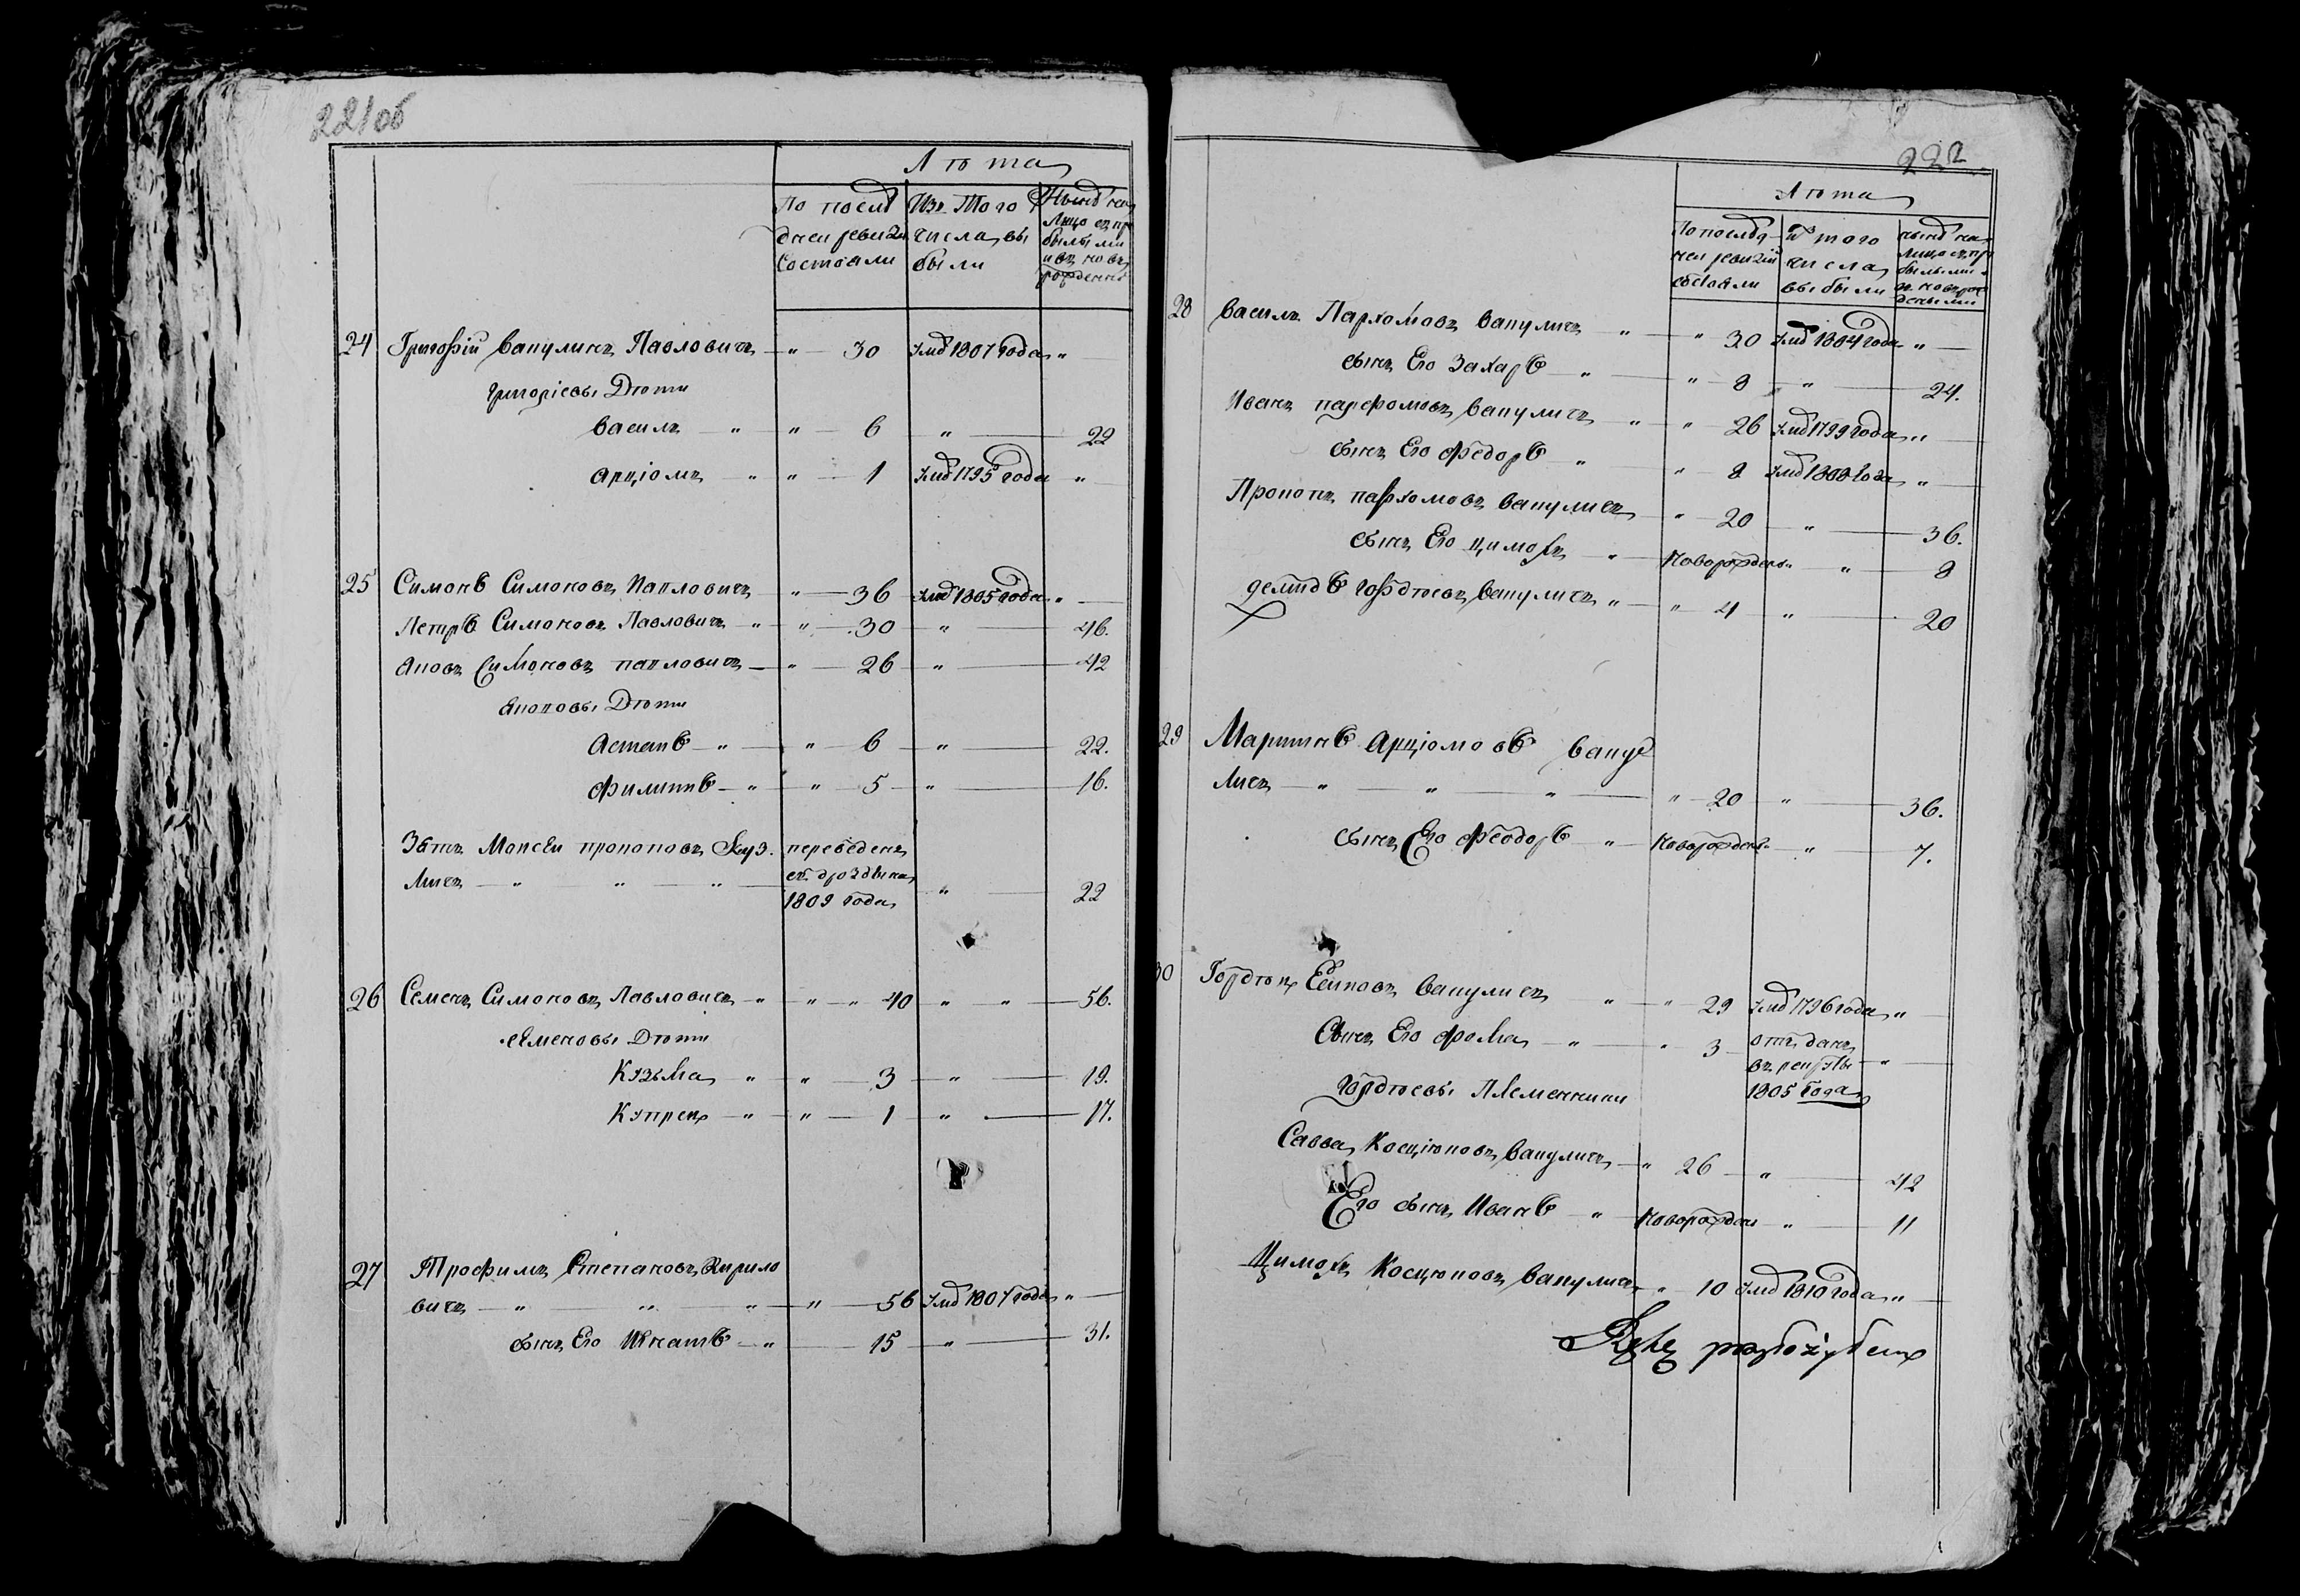 221об
Лѣта
По послѣ
дней ревизи
состояли
Изъ того
числа вы
были
Нынѣ на
лицо съ при
былыми
и въ новь
рожденны
24 Григорій Вакуличъ Павловичъ " 30 умѣ 1807 года "
Григоріевы Дѣти
Василь " " 6 " 22
Арціомъ " " 1 умѣ 1795 года "
25 Симонъ Симоновъ Павловичъ " 36 умѣ 1805 года "
Петръ Симоновъ Павловичъ " " 30 " 46.
Симоновъ Павловичъ " 26 " 42
Дѣти
" " 6 " 22.
Филипъ " " 5 " 16.
Зять Мойсей Прокоповъ
личъ " " "
переведенъ
1809 года
" 22
26 Семенъ Симоновъ Павловичъ " " " 40 " " 56.
Семеновы Дѣти
Кузьма " " 3 " 19.
Купрей " " 1 " 17.
27 Трофимъ Степановъ Кирило
вичъ " " " " 56 умѣ 1807 года "
сынъ Его Игнатъ " 15 " 31.
222
Лѣта
По послѣд
ней ревизіи
состояли
Из того
числа
выбыли
нынѣ на
лицо съ при
былыми
и новорож
деными
28 Василь Пархомовъ Вакуличъ " " 30 умѣ 1804 года "
сынъ Его Захаръ " " 8 " 24.
Иванъ Пархомовъ Вакуличъ " " 26 умѣ 1799 года "
сынъ Его Федоръ " " 8 умѣ 1808 года "
Прокопъ Пархомовъ Вакуличъ " 20 " 36.
сынъ Его Цимохъ " новорожден " 8
Демидъ Гордѣевъ Вакуличъ " " 4 " 20
29 Мартинъ Арціомовъ Ваку
личъ " " " " 20 " 36.
сынъ Его Феодоръ " новорожден " 7.
30 Гордѣй Вакуличъ " " 29 умѣ 1796 года "
Сынъ Его Фома " " 3 отъданъ
въ рекруты "
1805 года
Гордѣевы Племенники
Савва Косцюковъ Вакуличъ " 26 " 42
Его сынъ Иванъ " новорожден " 11
Цимохъ Косцюковъ Вакуличъ " 10 умѣ 1810 года "